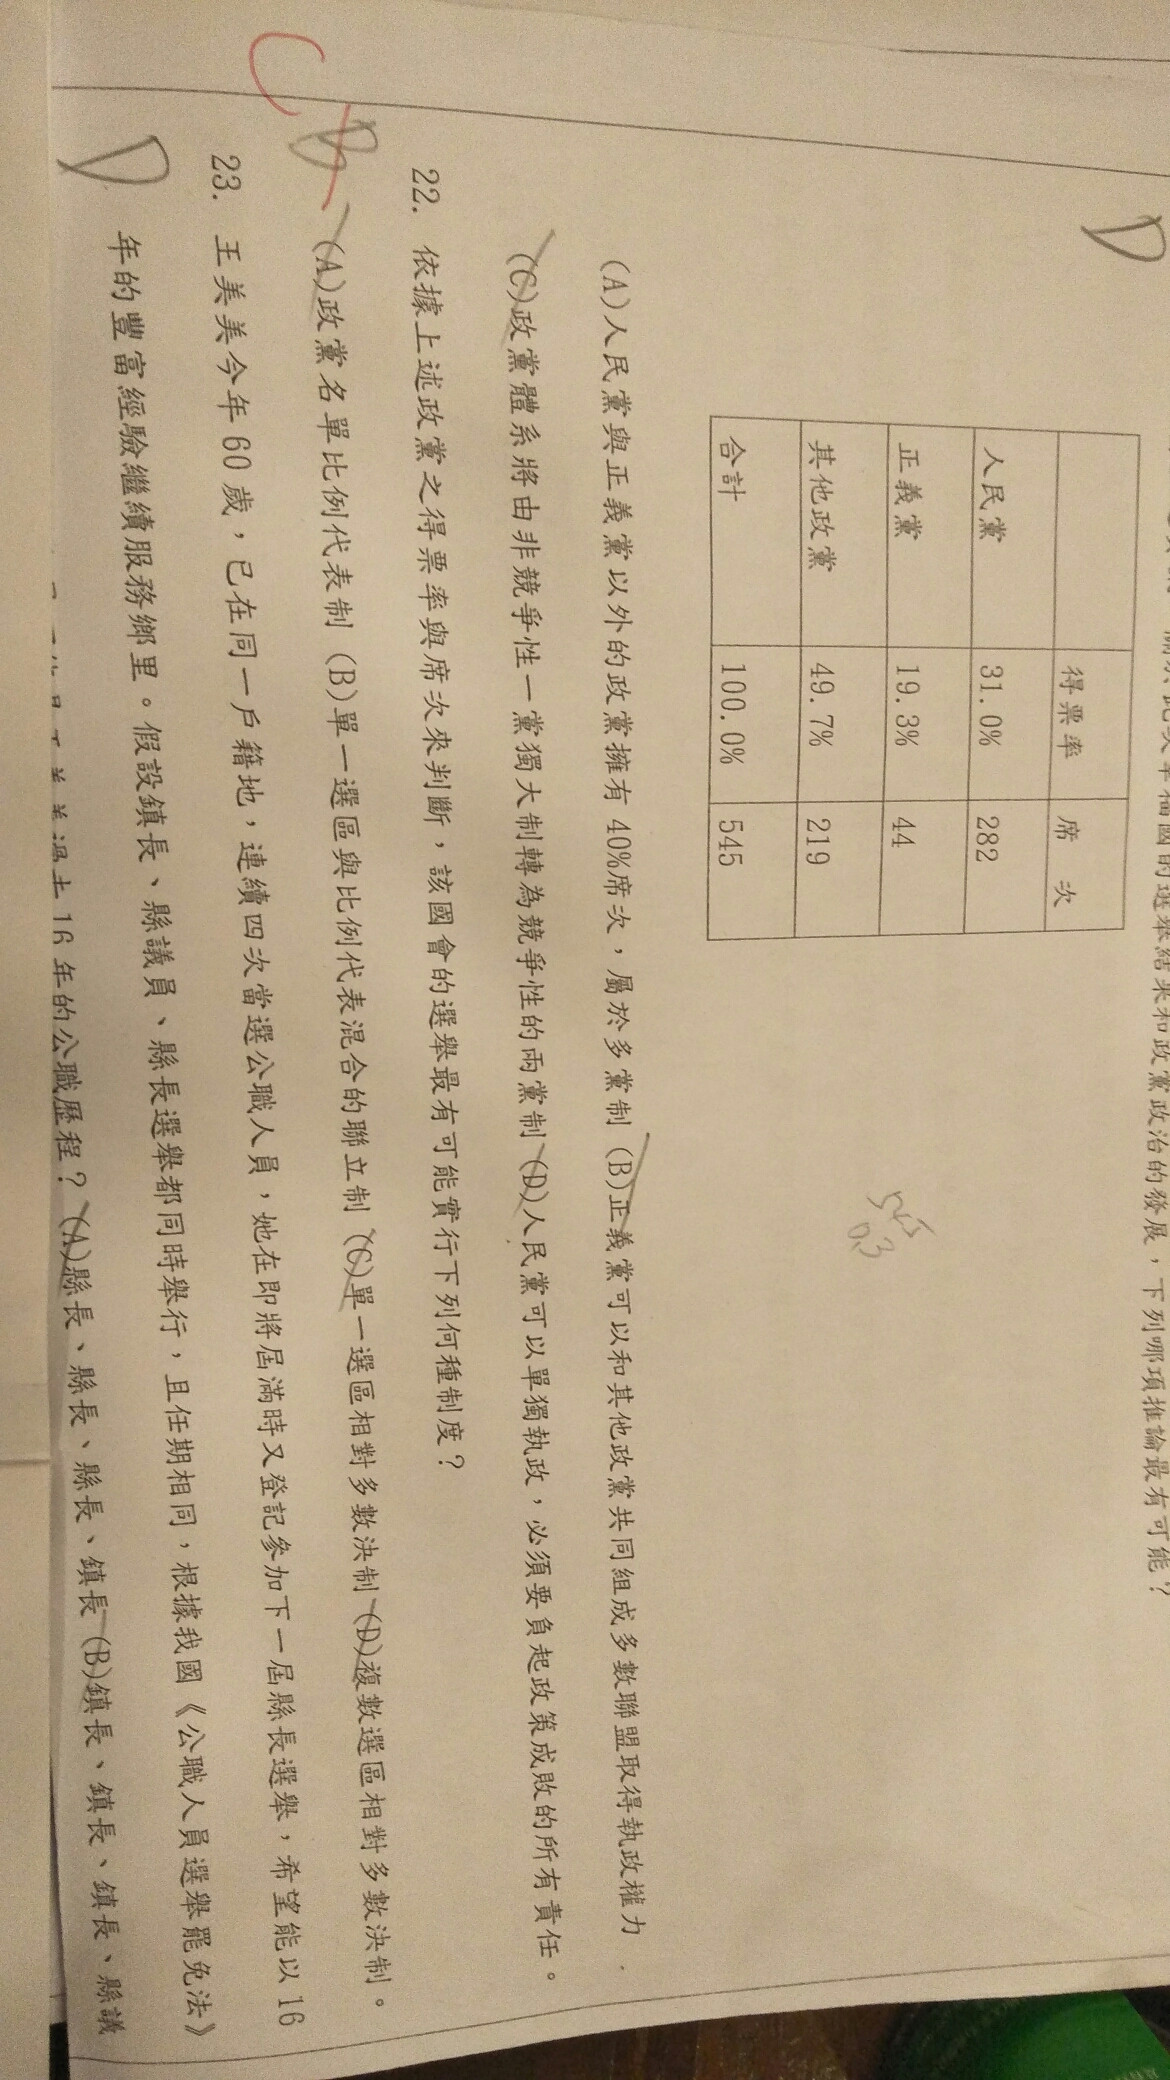 關於此次幸福國的選舉結果和政黨政治的發展，下列哪項推論最有可能？
D
得票率 席 次
人民黨 31.0% 282
正義黨 19.3% 44
其他政黨 49.7% 219
合計 100.0% 545
545
0.3
(A)人民黨與正義黨以外的政黨擁有 40%席次，屬於多黨制 (B)正義黨可以和其他政黨共同組成多數聯盟取得執政權力
(C)政黨體系將由非競爭性一黨獨大制轉為競爭性的兩黨制 (D)人民黨可以單獨執政，必須要負起政策成敗的所有責任。
22. 依據上述政黨之得票率與席次來判斷，該國會的選舉最有可能實行下列何種制度？
C B
(A)政黨名單比例代表制 (B)單一選區與比例代表混合的聯立制 (C)單一選區相對多數決制 (D)複數選區相對多數決制。
23. 王美美今年 60 歲，已在同一戶籍地，連續四次當選公職人員，她在即將屆滿時又登記參加下一屆縣長選舉，希望能以 16
D
年的豐富經驗繼續服務鄉里。假設鎮長、縣議員、縣長選舉都同時舉行，且任期相同，根據我國《公職人員選舉罷免法》
美過去 16 年的公職歷程？ (A)縣長、縣長、縣長、鎮長 (B)鎮長、鎮長、鎮長、縣議